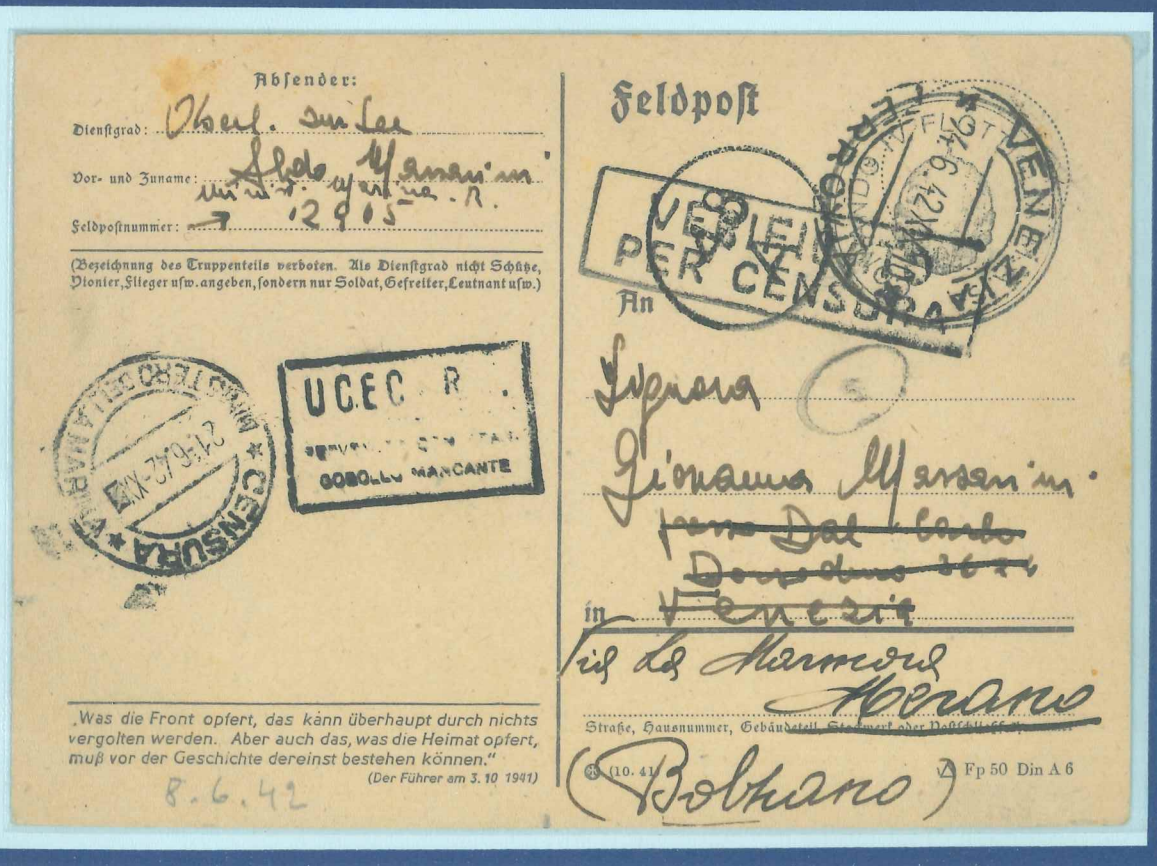 Absender:
Dienstgrad: Oberl.
Vor- und Zuname: Aldo Massarini
Feldpostnummer: → 12905
(Bezeichnung des Truppenteils verboten. Als Dienstgrad nicht Schütze,
Pionier, Flieger usw. angeben, sondern nur Soldat, Gefreiter, Leutnant usw.)
MINISTERO DELLA MARINA
21.6.42
* CENSURA *
U.C.E.C. R.
BOBOLLO MANCANTE
„Was die Front opfert, das kann überhaupt durch nichts
vergolten werden. Aber auch das, was die Heimat opfert,
muß vor der Geschichte dereinst bestehen können.“
(Der Führer am 3. 10 1941)
8.6.42
Feldpost
VENEZIA FERROVIA
24-6-42
PER CENSURA
An
Signora
Giovanna Massarini
Dorsoduro
in Venezia
Via La Marmora
Merano
Straße, Hausnummer, Gebäudeteil, Stockwerk oder Postschließfach
(10. 41) Fp 50 Din A 6
(Bolzano)